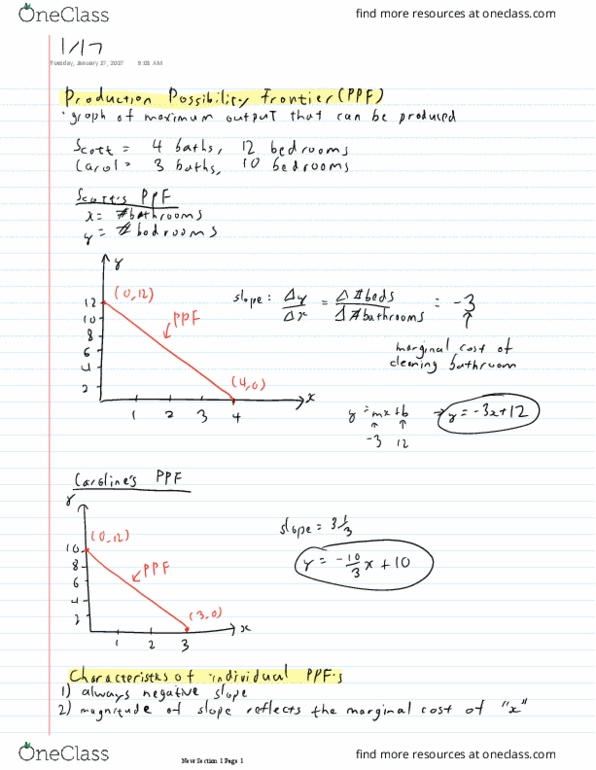 OneClass
find more resources at oneclass.com
1/17
Tuesday, January 17, 2017 9:01 AM
Production Possibility Frontier (PPF)
· graph of maximum output that can be produced
Scott = 4 baths, 12 bedrooms
Carol = 3 baths, 10 bedrooms
Scott's PPF
x = #bathrooms
y = # bedrooms
y
(0,12)
slope: Δy/Δx = Δ#beds/Δ#bathrooms = -3
12
10
8
6
4
2
PPF
marginal cost of
cleaning bathroom
(4,0)
x
1 2 3 4
y = mx+b → y = -3x+12
-3 12
Caroline's PPF
Y
(0,12)
slope = 3 1/3
10
8
6
4
2
PPF
y = -10/3 x + 10
(3,0)
x
1 2 3
Characteristics of individual PPF's
1) always negative slope
2) magnitude of slope reflects the marginal cost of "x"
New Section 1 Page 1
OneClass
find more resources at oneclass.com